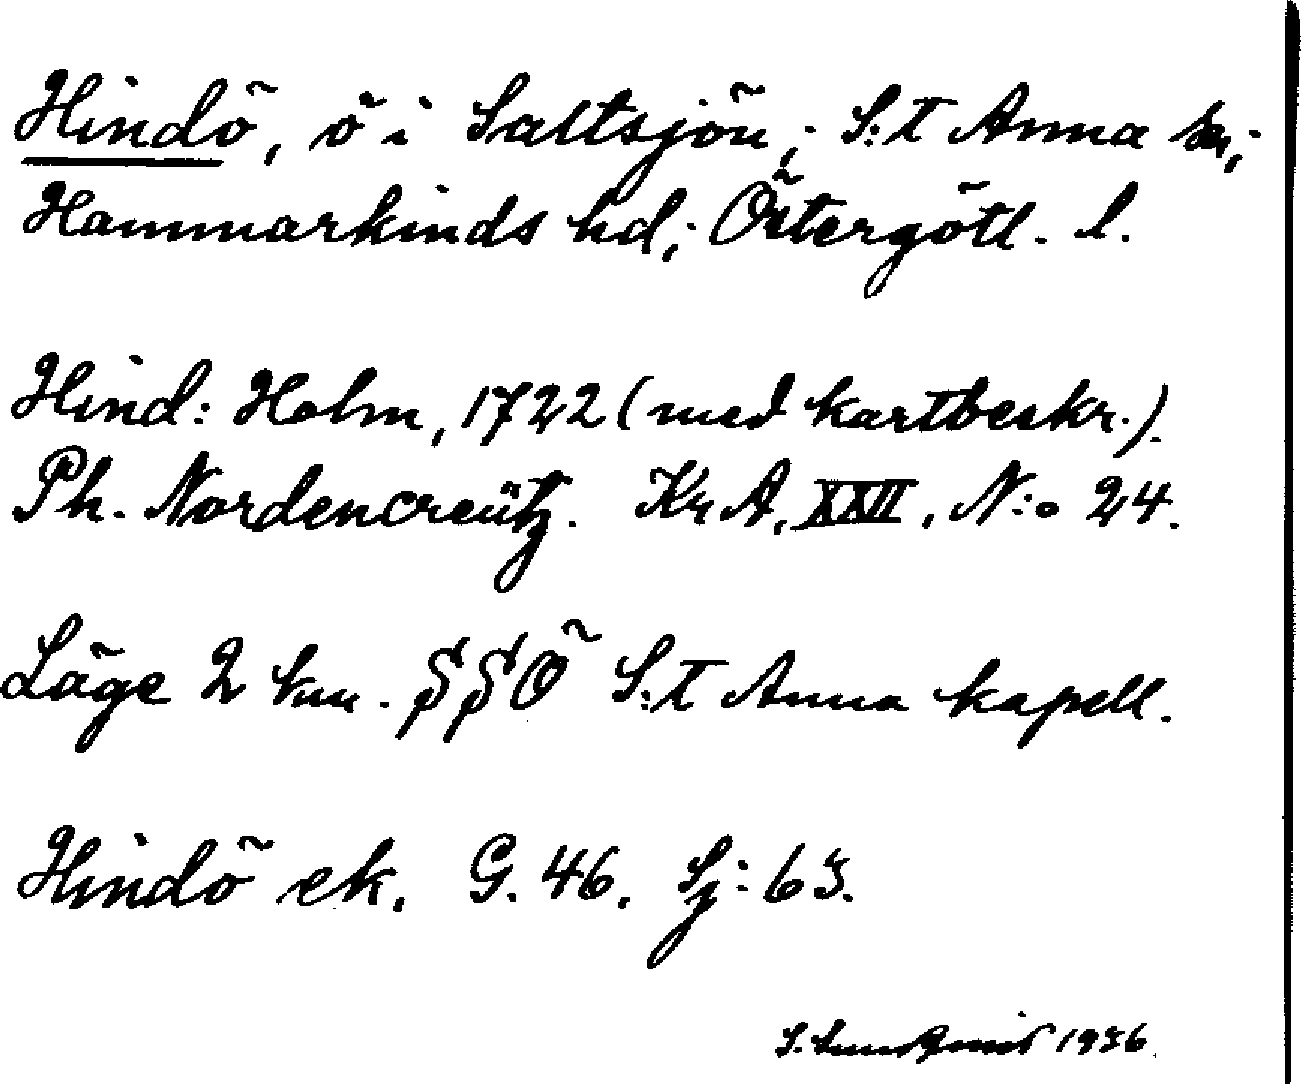 Hindö, ö i Saltsjön; S:t Anna sn;
Hammarkinds hd; Östergötl. l.
Hind: Holm, 1722 (med kartbeskr.).
Ph. Nordencreütz. Kr A, XXII, N:o 24.
Läge 2 km. SSÖ S:t Anna kapell.
Hindö ek. G. 46. Sj: 63.
S. 1936